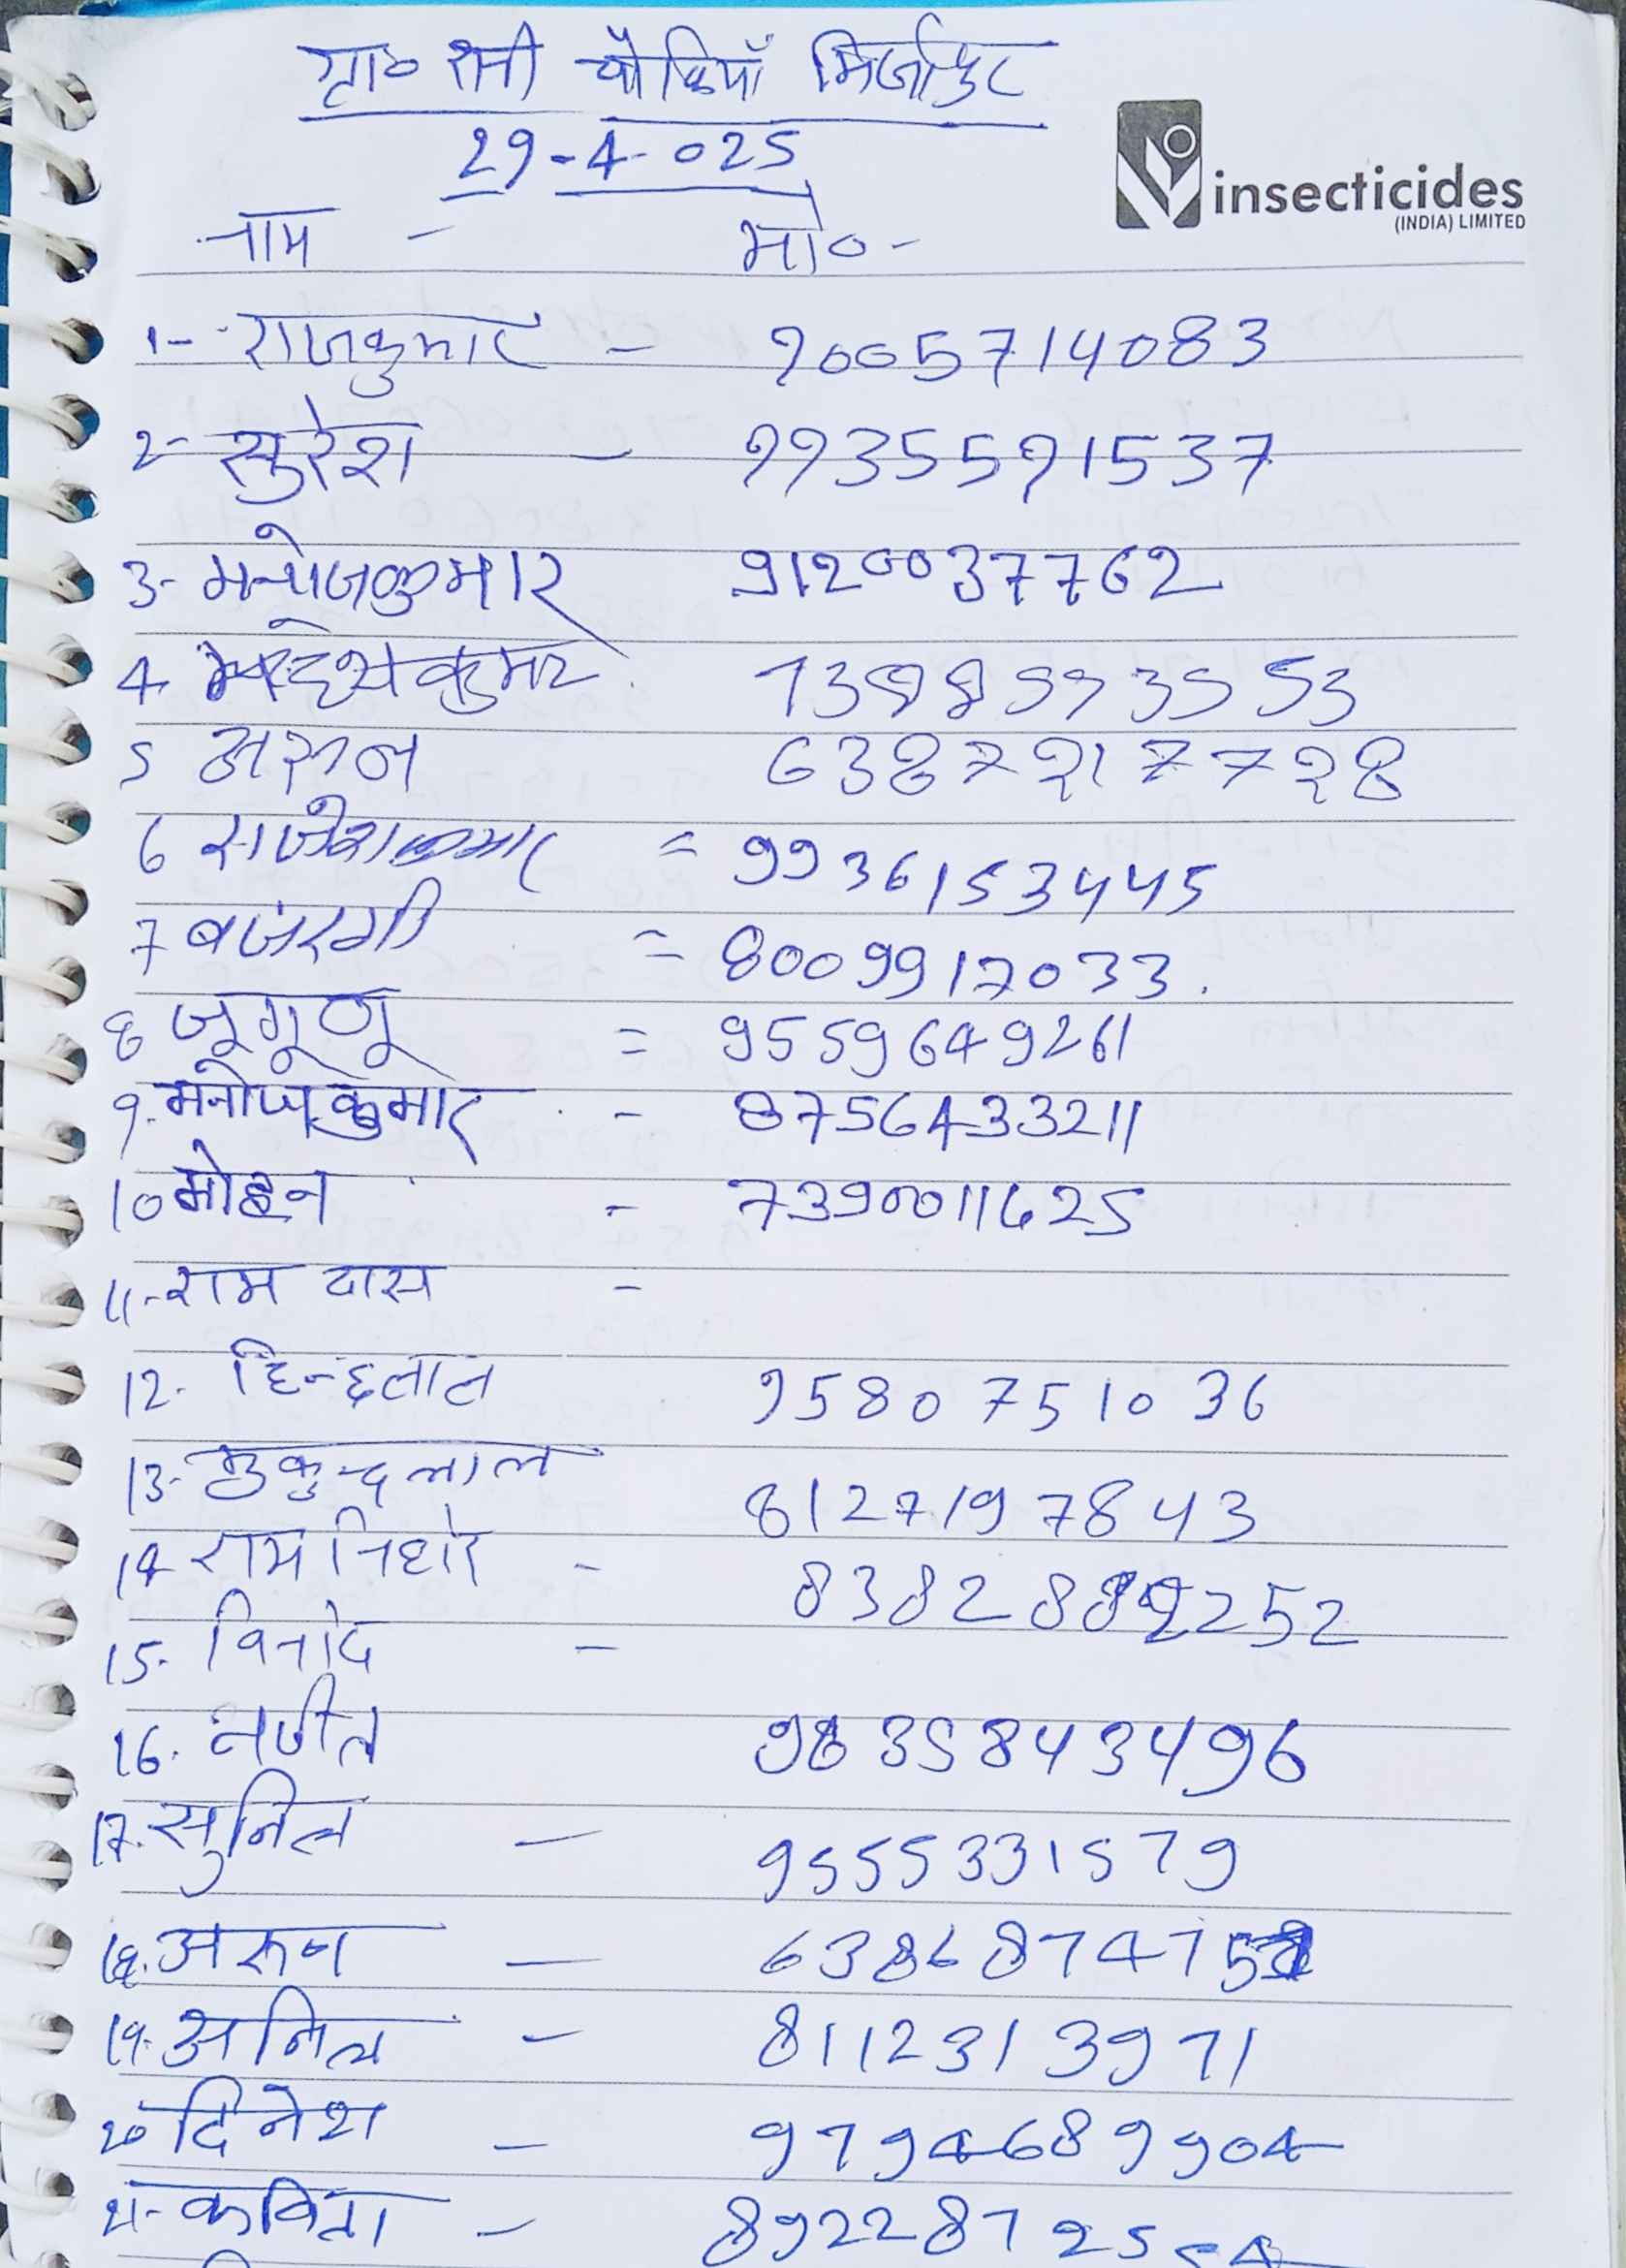 ग्रा० रानी चौकियाँ मिर्जापुर
29-4-025
insecticides
(INDIA) LIMITED
नाम - मो०-
1- राजकुमार - 9005714083
2- सुरेश - 9935591537
3- मनोजकुमार 9120037762
4 कुमार
5 अरुन
6 राजेशकुमार = 9936153445
7 बजरंगी = 8009917033.
8 जूगूनू = 9559649261
9. मनोजकुमार - 8756433211
10 मोहन - 7390011625
11- राम दास -
12. हिन्दलाल 9580751036
13- मुकुन्दलाल 8127197843
14 राम निहोर - 8382
15. विनोद -
16. 
17. सुनिल - 9555331579
18. अरुन -
19. अनिल - 8112313971
20 दिनेश - 9794689904
21- कविता -